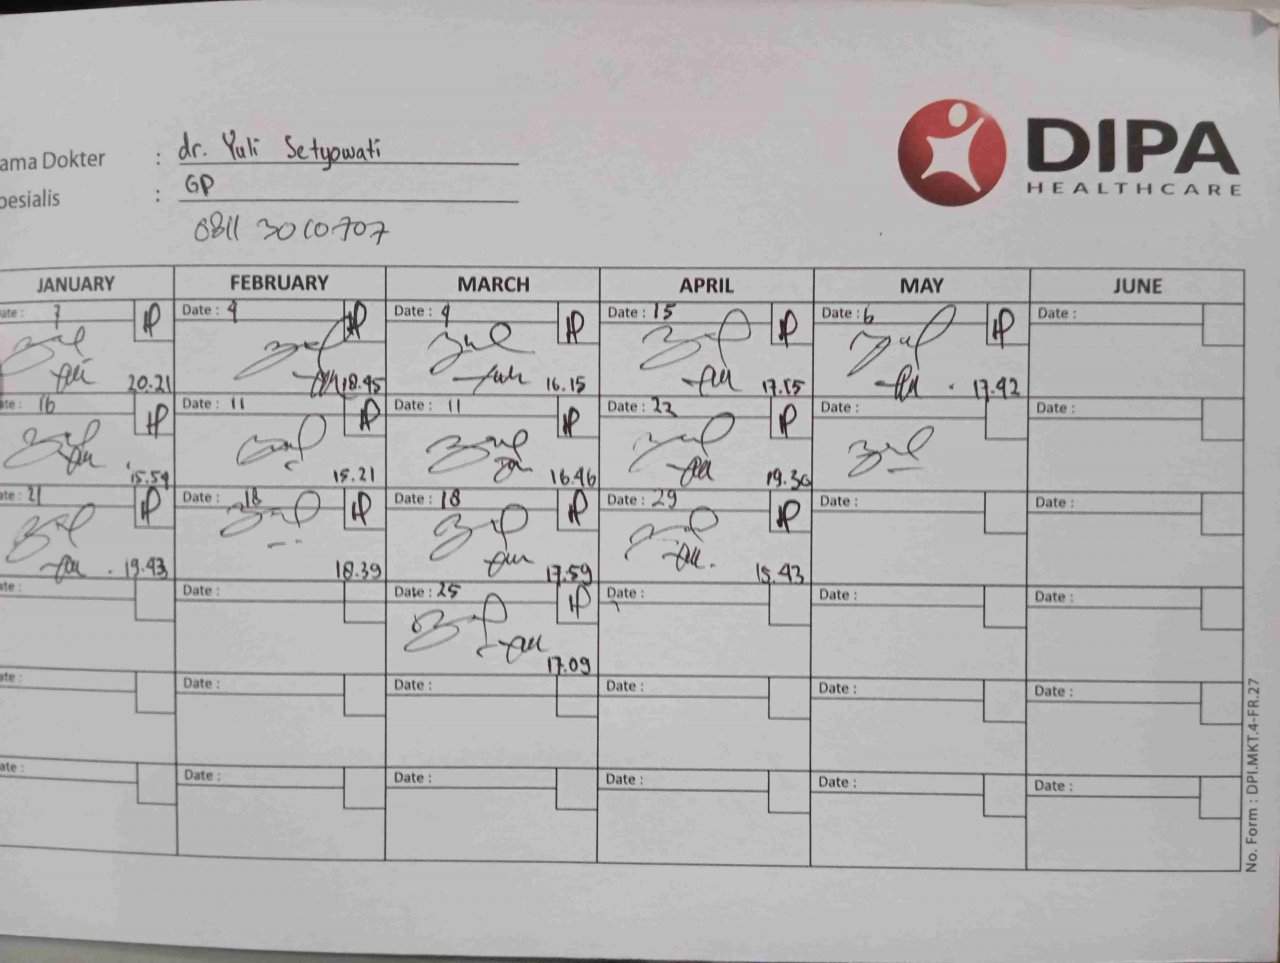 DIPA
HEALTHCARE
ama Dokter : dr. Yuli Setyowati
pesialis : GP
0811 3010707
JANUARY FEBRUARY MARCH APRIL MAY JUNE
ate : 7 Date : 4 Date : 4 Date : 15 Date : 6 Date :
20.21 18.45 16.15 17.15 17.42
ate : 16 Date : 11 Date : 11 Date : 22 Date : Date :
15.59 15.21 16.46 19.30
ate : 21 Date : 18 Date : 18 Date : 29 Date : Date :
19.43 18.39 17.59 15.43
ate : Date : Date : 25 Date : Date : Date :
17.09
ate : Date : Date : Date : Date : Date :
ate : Date : Date : Date : Date : Date :
No. Form : DPI.MKT.4-FR.27